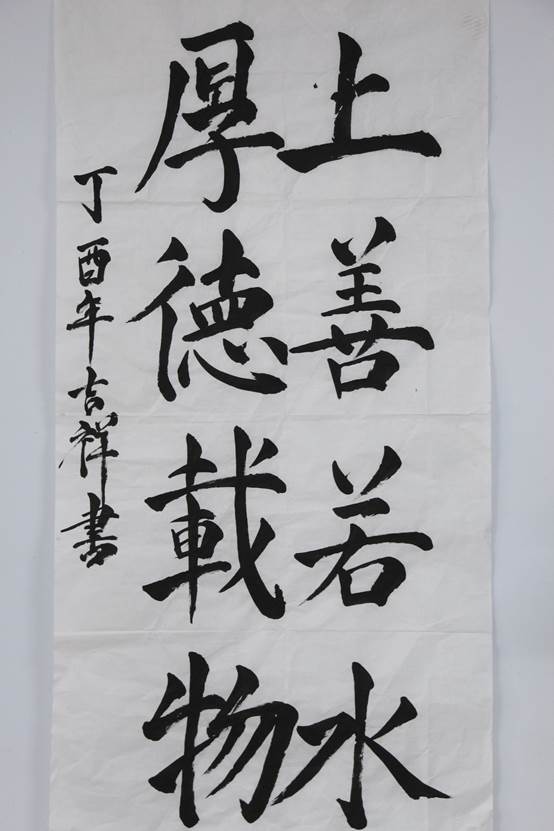 上善若水
厚德載物
丁酉年吉祥書